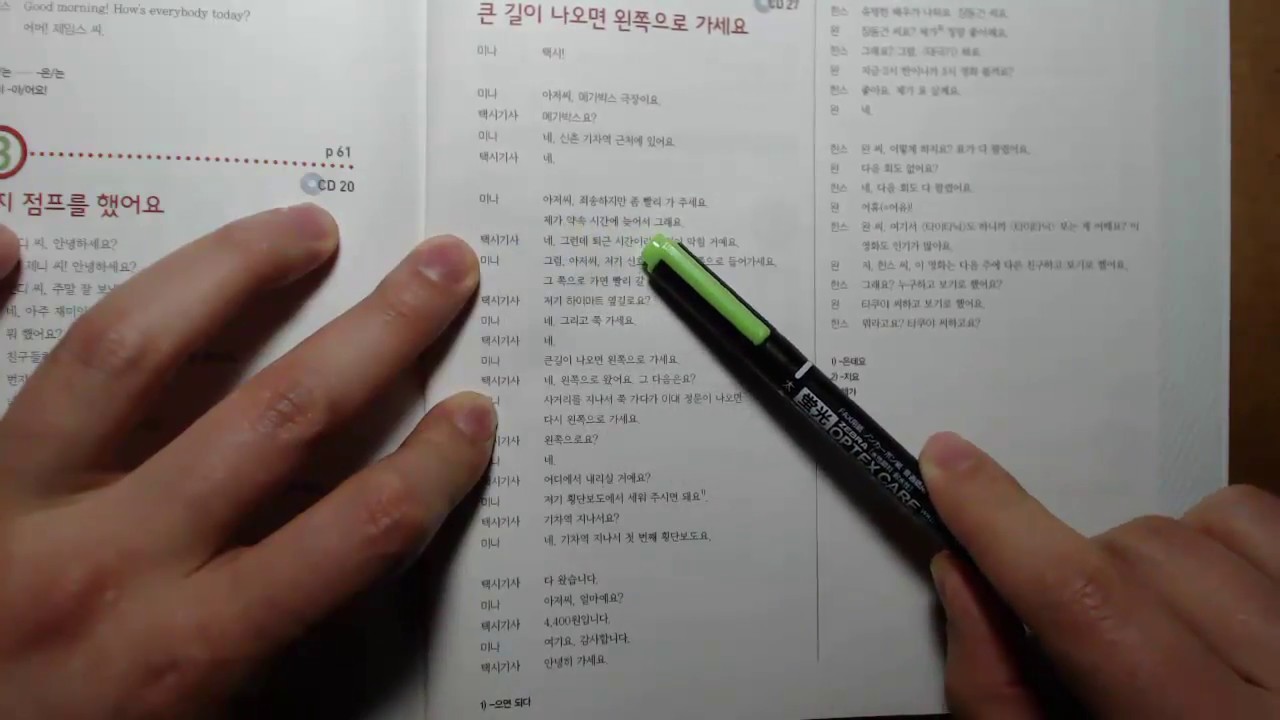 Good morning! How's everybody today?
어머! 제임스 씨.
-아/어요!
p 61
CD 20
점프를 했어요
씨, 안녕하세요?
제니 씨! 안녕하세요?
씨, 주말 잘
네, 아주
뭐 했어요?
CD 27
큰 길이 나오면 왼쪽으로 가세요
미나 택시!
미나 아저씨, 메가박스 극장이요.
택시기사 메가박스요?
미나 네, 신촌 기차역 근처에 있어요.
택시기사 네.
미나 아저씨, 죄송하지만 좀 빨리 가 주세요.
제가 약속 시간에 늦어서 그래요.
택시기사 네, 그런데 퇴근 막힐 거예요.
미나 그럼, 아저씨, 저기 들어가세요.
그 쪽으로 가면 빨리
택시기사 저기 하이마트 옆길로요?
미나 네, 그리고 쭉 가세요.
택시기사 네.
미나 큰길이 나오면 왼쪽으로 가세요.
택시기사 네, 왼쪽으로 왔어요. 그 다음은요?
사거리를 지나서 쭉 가다가 이대 정문이 나오면
다시 왼쪽으로 가세요.
왼쪽으로요?
네.
택시기사 어디에서 내리실 거예요?
미나 저기 횡단보도에서 세워 주시면 돼요¹⁾.
택시기사 기차역 지나서요?
미나 네, 기차역 지나서 첫 번째 횡단보도요.
택시기사 다 왔습니다.
미나 아저씨, 얼마예요?
택시기사 4,400원입니다.
미나 여기요, 감사합니다.
택시기사 안녕히 가세요.
1) -으면 되다
한스 유명한 배우가 나와요. 장동건 씨요.
완 장동건 씨요? 제가 정말 좋아해요.
한스 그래요? 그럼, 〈태극기〉 봐요.
완
한스 좋아요. 제가 표 살게요.
완 네.
한스 완 씨, 어떻게 하지요? 표가 다 팔렸어요.
완 다음 회도 없어요?
한스 네, 다음 회도 다 팔렸어요.
완
한스 완 씨, 여기서 〈타이타닉〉도 하니까 〈타이타닉〉 보는 게 어때요? 이
영화도 인기가 많아요.
완 저, 한스 씨, 이 영화는 다음 주에 다른 친구하고 보기로 했어요.
한스 그래요? 누구하고 보기로 했어요?
완 타쿠야 씨하고 보기로 했어요.
한스 뭐라고요? 타쿠야 씨하고요?
1) -은데요
-지요
蛍光
ZEBRA
OPTEX CARE